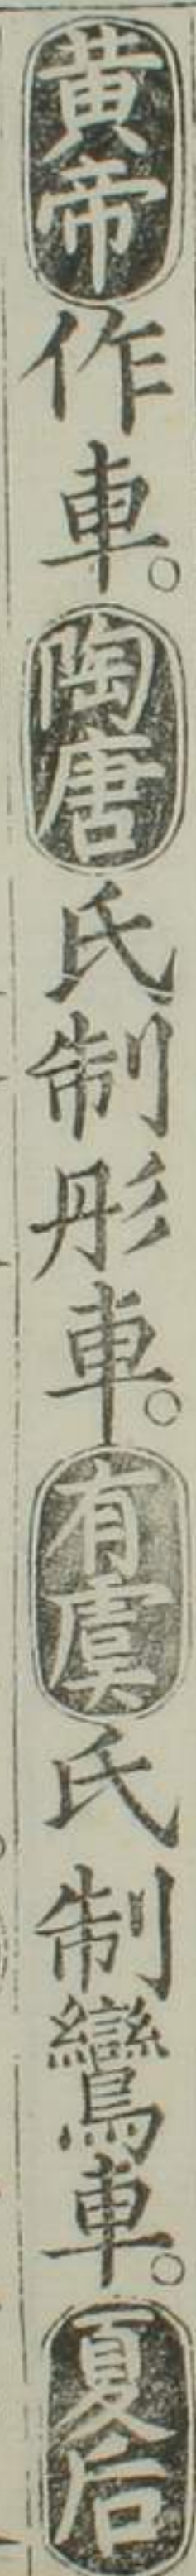 黄帝作車。陶唐氏制彤車。有虞氏制鸞車。夏后